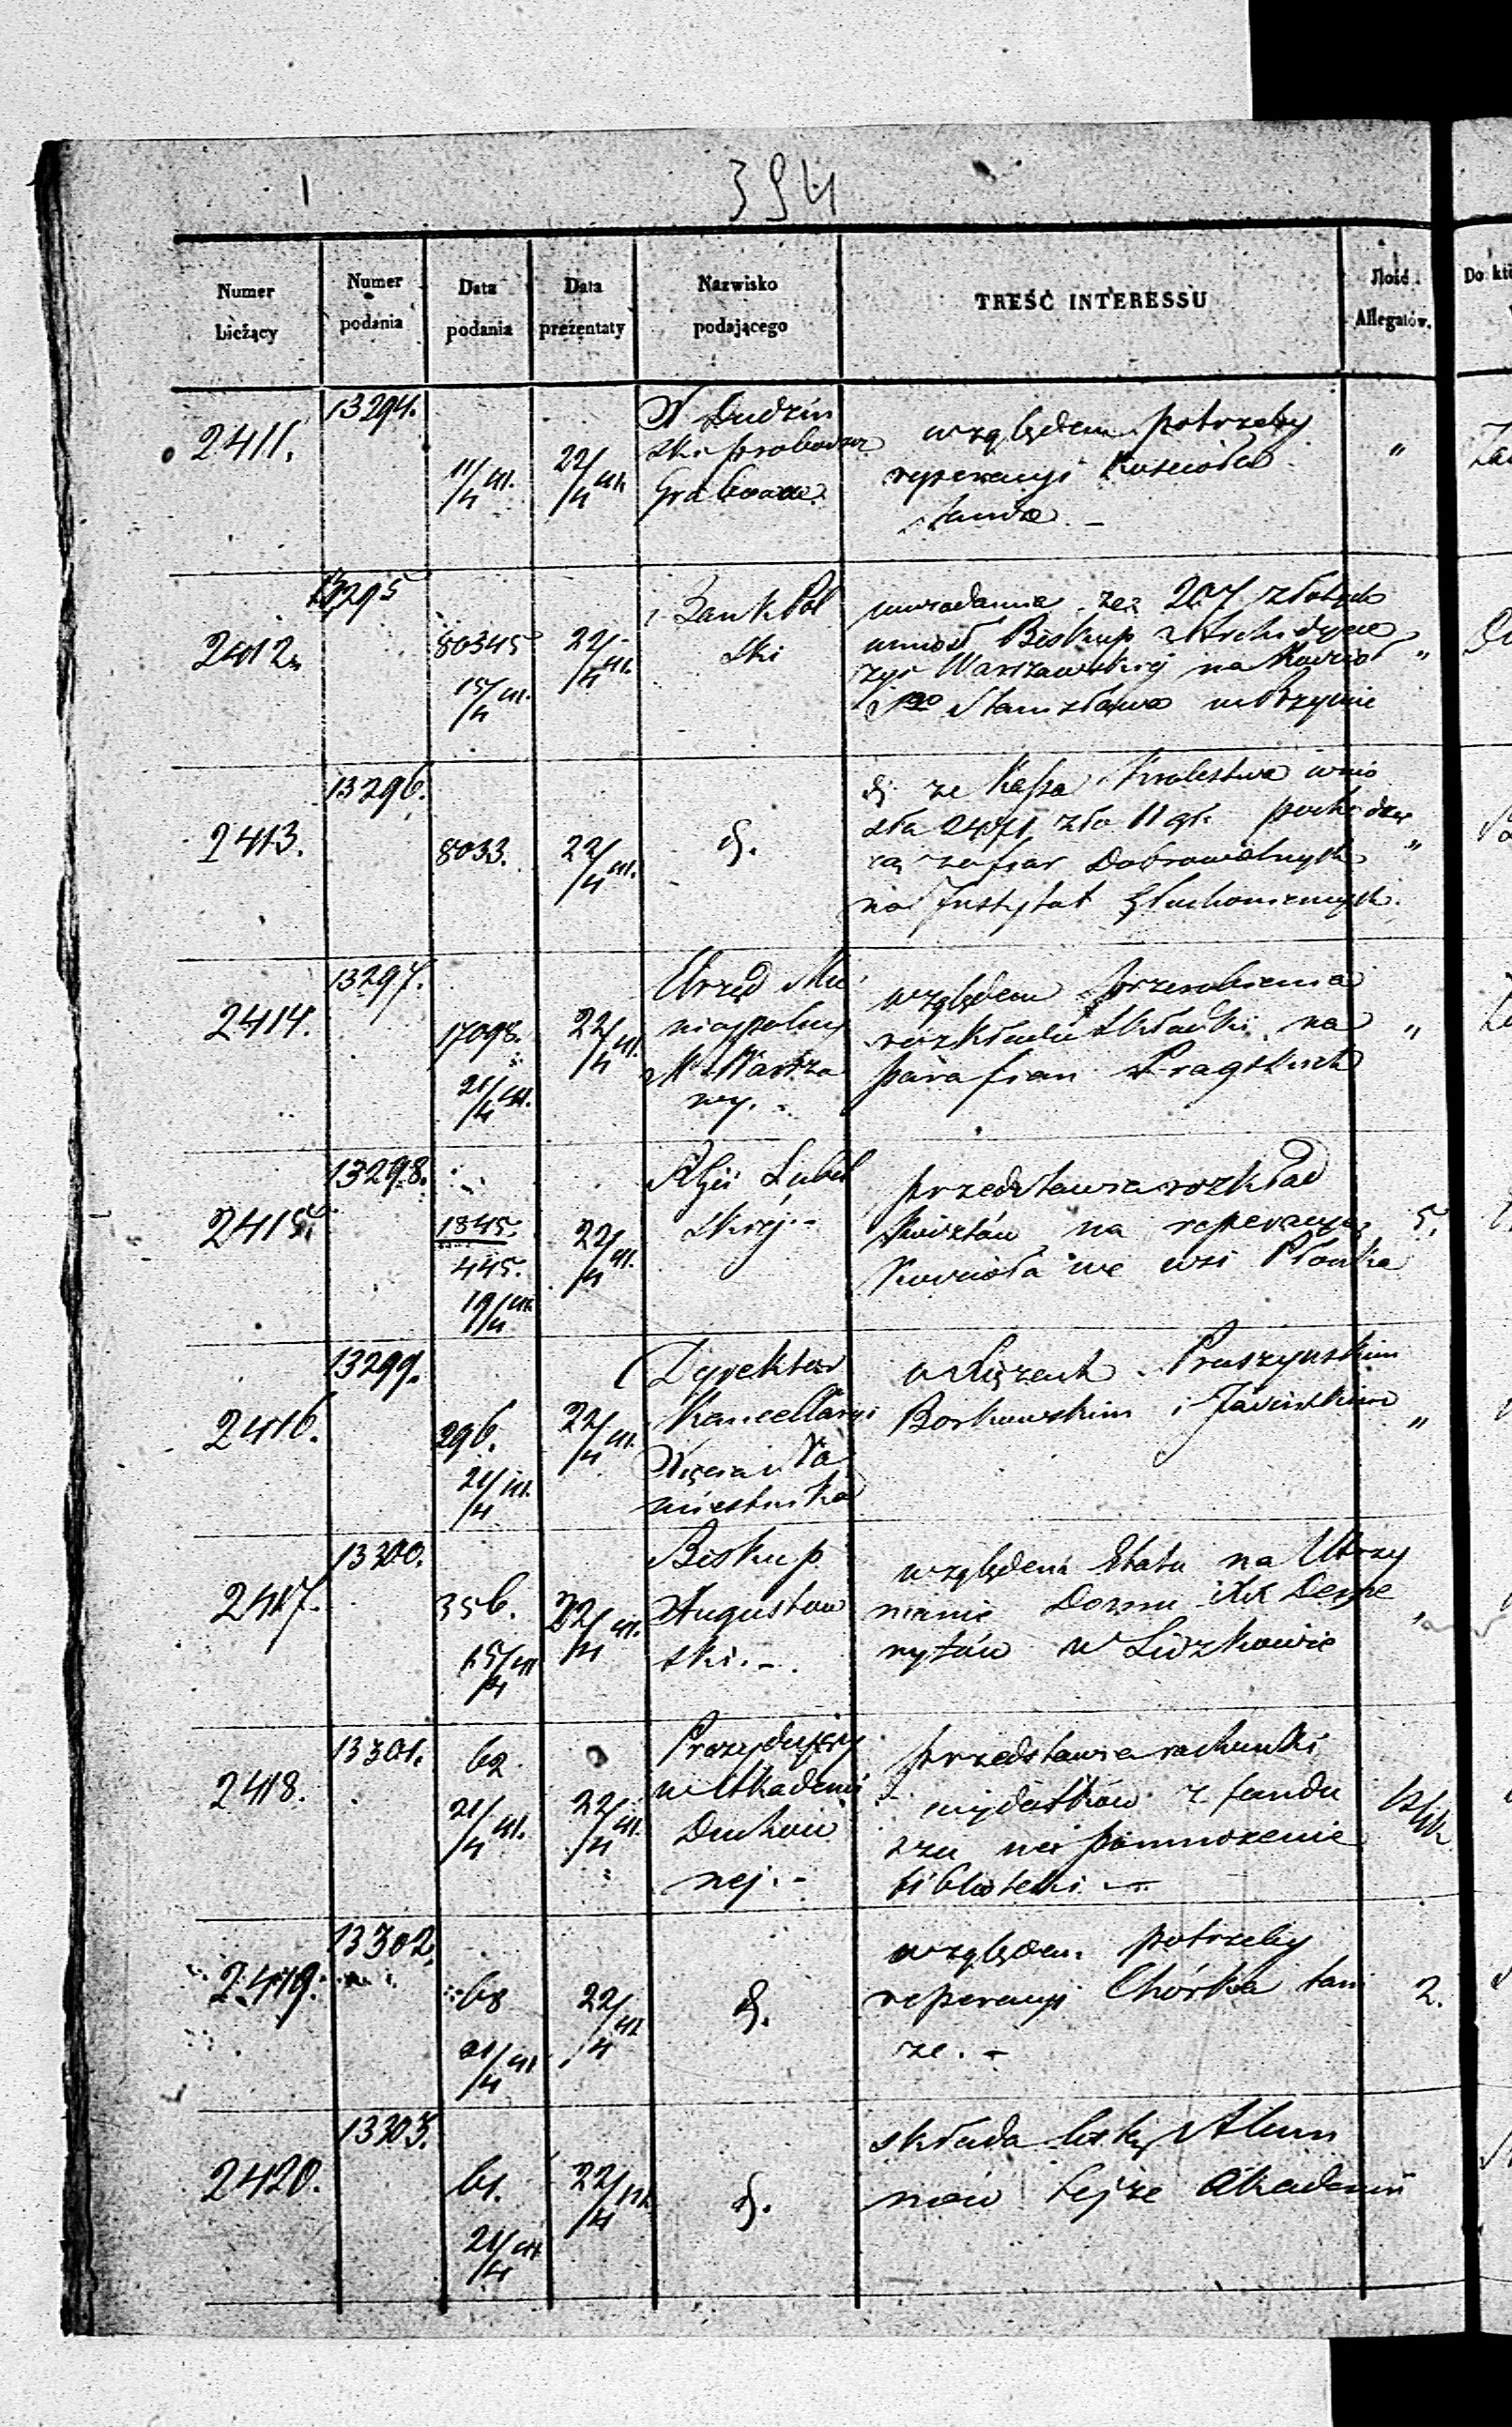 394
Numer bieżący | Numer podania | Data podania | Data prezentaty | Nazwisko podającego | TREŚĆ INTERESSU | Ilość Allegatów. | Do któ
13294.
2411.
11/4 m.
22/4 m.
X Dudzin
ski proboszcz
Grabowa
względem potrzeby
reperacyi Kościoła
tamże. –
"
13295
2412.
80345
15/4 m.
22/4 m.
Bank Pol
ski
uwiadamia że 207 złotych
wniósł Biskup z Archidyece
zyi Warszawskiej na Kościół
Sgo Stanisława w Rzymie
"
13296.
2413.
8033.
22/4 m.
d.
d. ze Kassa Krolestwa wnio
sła 2471 zło 11 gr. pochodzą
cą z ofiar Dobrowolnych
na Instytut Głuchoniemych.
"
13297.
2414.
17098.
21/4 m.
22/4 m.
Urząd Mu
nicypalny
M. Warsza
wy. –
względem przerobienia
rozkładu składki na
parafian Pragskich
"
13298.
2415.
1845.
445.
19/4 m.
22/4 m.
Lubel
skiej. –
przedstawia rozkład
kosztów na reperacyą
Kościoła we wsi Płonka
5.
13299.
2416.
296.
21/4 m.
22/4 m.
Dyrektor
Kancellaryi
Xięcia Na
miestnika
o Xiężach Pruszynskim
Borkowskim i Jasinskim
"
13300.
2417.
356.
15/4 m.
22/4 m.
Biskup
Augustow
ski. –
względem Etatu na Utrzy
manie Domu XX Deme
rytów w Liszkowie
"
13301.
2418.
62.
21/4 m.
22/4 m.
Prezydujący
w Akademii
Duchow
nej. –
przedstawia rachunki
wydatków z fundu
szu na pomnożenie
biblioteki. –
13302.
2419.
68
21/4 m.
22/4 m.
d.
względem potrzeby
reperacyi Chórka tam
że. –
2.
13303.
2420.
61.
21/4 m.
22/4 m.
d.
składa listę Alum
nów tejże Akademii